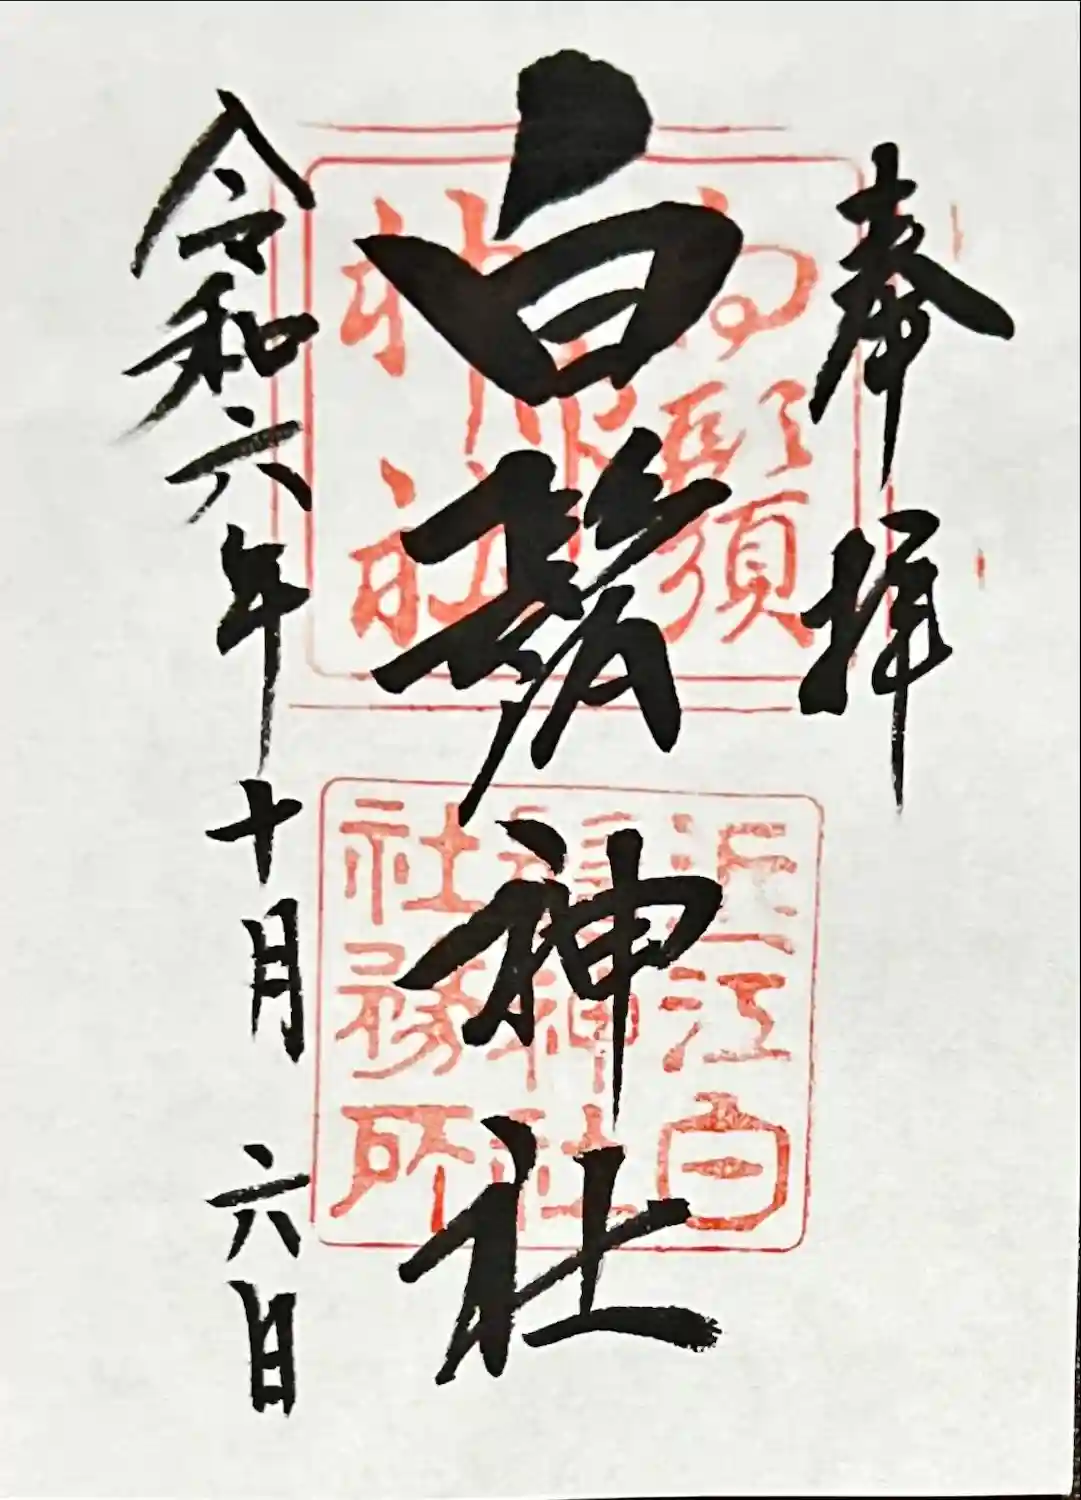 奉拝
白鬚神社
令和六年十月六日
白鬚
神社
近江白
鬚神社
社務所